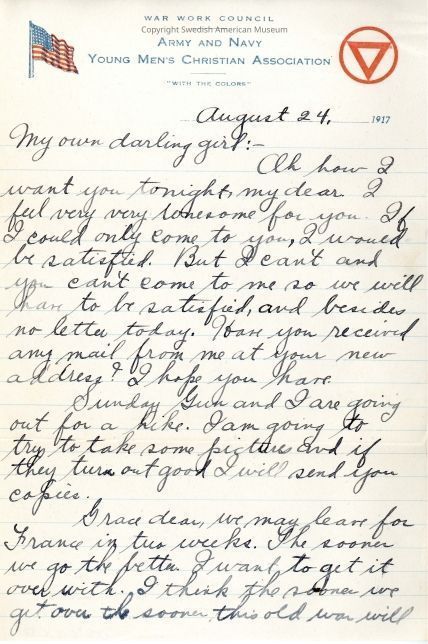 WAR WORK COUNCIL
Copyright Swedish American Museum
ARMY AND NAVY
YOUNG MEN'S CHRISTIAN ASSOCIATION
"WITH THE COLORS"
August 24, 1917
My own darling girl:-
Oh how I
want you tonight, my dear. I
feel very very lonesome for you. If
I could only come to you, I would
be satisfied. But I can't and
you can't come to me so we will
have to be satisfied, and besides
no letter today. Have you received
any mail from me at your new
address? I hope you have.
Sunday Gun and I are going
out for a hike. I am going to
try to take some pictures and if
they turn out good I will send you
copies.
Grace dear, we may leave for
France in two weeks. The sooner
we go the better. I want to get it
over with. I think the sooner we
get over the sooner this old war will